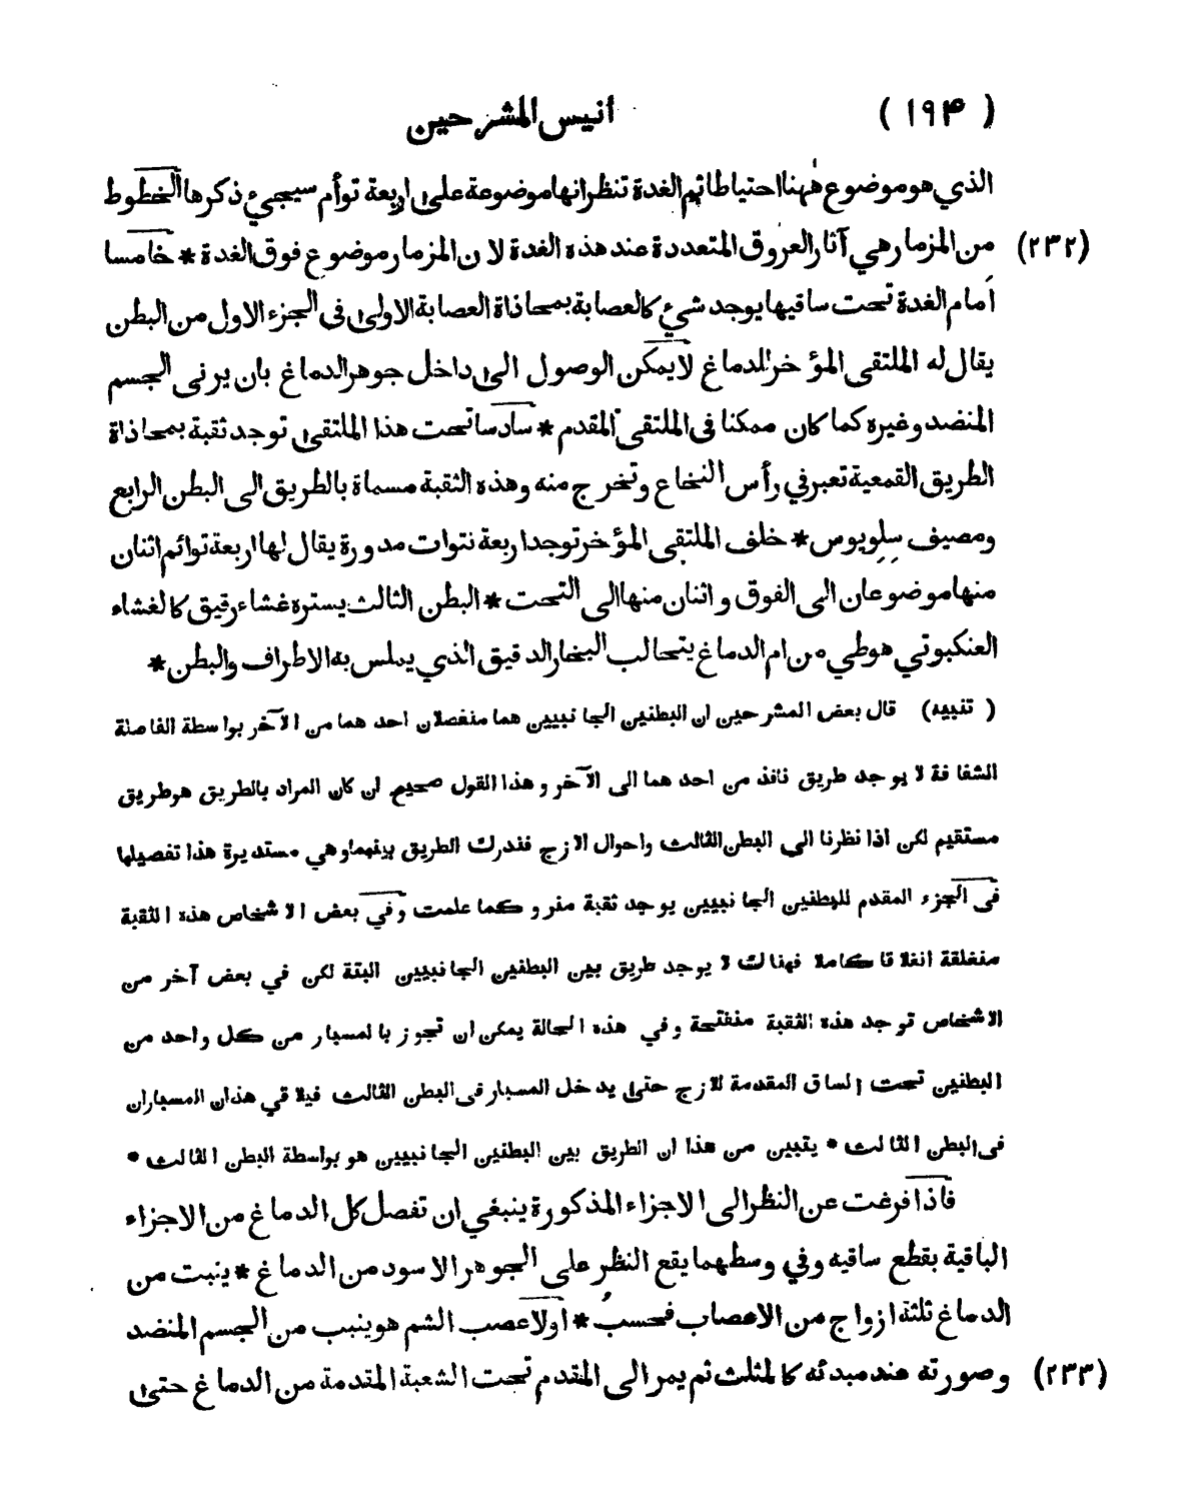 ( ١٩۴ ) انيس المشرحين
الذي هو موضوع ههنا احتياطا ثم الغدة تنظر انها موضوعة على اربعة توأم سيجيء ذكرها الخطوط
(٢٣٢) من المزمار هي آثار العروق المتعددة عند هذه الغدة لان المزمار موضوع فوق الغدة * خامسا
امام الغدة تحت ساقيها يوجد شيء كالعصابة بمحاذاة العصابة الاولى فى الجزء الاول من البطن
يقال له الملتقى المؤخر للدماغ لا يمكن الوصول الى داخل جوهر الدماغ بان يرنى الجسم
المنضد وغيره كما كان ممكنا فى الملتقى المقدم * سادسا تحت هذا الملتقى توجد ثقبة بمحاذاة
الطريق القمعية تعبر في رأس النخاع وتخرج منه وهذه الثقبة مسماة بالطريق الى البطن الرابع
ومصيف سلويوس * خلف الملتقى المؤخر توجد اربعة نتوات مدورة يقال لها اربعة توائم اثنان
منها موضوعان الى الفوق واثنان منها الى التحت * البطن الثالث يستره غشاء رقيق كالغشاء
العنكبوتي هو طي من ام الدماغ يتحالب البخار الدقيق الذي يملس به الاطراف والبطن *
( تنبيه) قال بعض المشرحين ان البطنين الجانبيين هما منفصلان احدهما من الآخر بواسطة الفاصلة
الشفافة لا يوجد طريق نافذ من احدهما الى الآخر و هذا القول صحيح ان كان المراد بالطريق هو طريق
مستقيم لكن اذا نظرنا الى البطن الثالث واحوال الازج فندرك الطريق بينهما وهي مستديرة هذا تفصيلها
فى الجزء المقدم للبطنين الجانبيين يوجد ثقبة منرو كما علمت وفي بعض الاشخاص هذه الثقبة
منغلقة انغلاقا كاملا فهناك لا يوجد طريق بين البطنين الجانبيين البتة لكن في بعض آخر من
الاشخاص توجد هذه الثقبة منفتحة وفي هذه الحالة يمكن ان تجوز بالمسبار من كل واحد من
البطنين تحت الساق المقدمة للازج حتى يدخل المسبار فى البطن الثالث فيلاقي هذان المسباران
فى البطن الثالث * يتبين من هذا ان الطريق بين البطنين الجانبيين هو بواسطة البطن الثالث *
فاذا فرغت عن النظر الى الاجزاء المذكورة ينبغي ان تفصل كل الدماغ من الاجزاء
الباقية بقطع ساقيه وفي وسطهما يقع النظر على الجوهر الاسود من الدماغ * ينبت من
الدماغ ثلثة ازواج من الاعصاب فحسب * اولا عصب الشم هو ينبب من الجسم المنضد
(٢٣٣) وصورته عند مبدئه كالمثلث ثم يمر الى المقدم تحت الشعبة المقدمة من الدماغ حتى